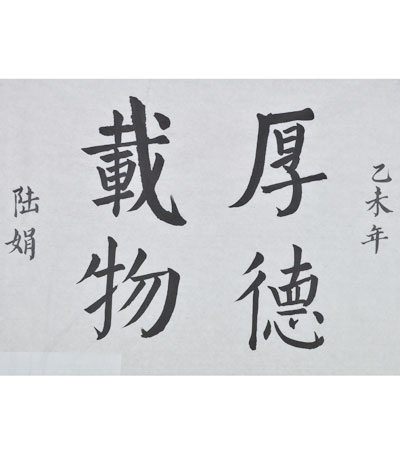 乙未年
厚德
載物
陆娟